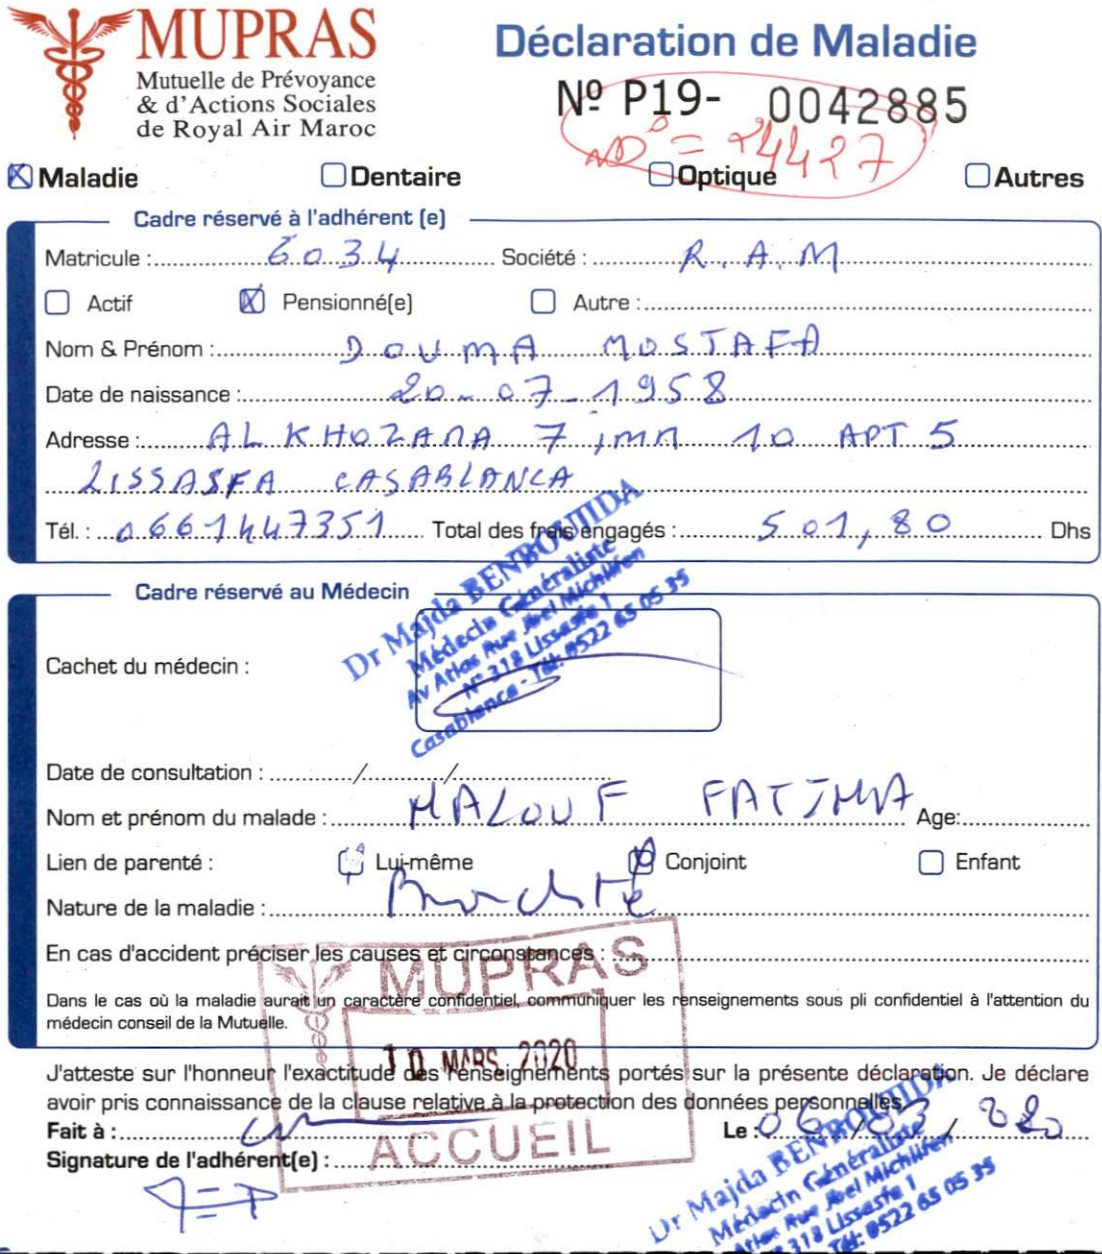 MUPRAS
Mutuelle de Prévoyance
& d'Actions Sociales
de Royal Air Maroc
Déclaration de Maladie
Nº P19- 0042885
ND° = 24427
Maladie Dentaire Optique Autres
Cadre réservé à l'adhérent (e)
Matricule : 6034 Société : R.A.M
Actif Pensionné(e) Autre :
Nom & Prénom : DOUMA MOSTAFA
Date de naissance : 20-07-1958
Adresse : AL KHOZAMA 7 imm 10 APT 5
LISSASFA CASABLANCA
Tél. : 0661447351 Total des frais engagés : 501,80 Dhs
Cadre réservé au Médecin
Cachet du médecin :
Dr Majda BENBOUJIDA
Médecin Généraliste
Av Atlas Rue Jbel Michlifen
N° 318 Lissasfa 1
Casablanca - Tél: 0522 65 05 35
Date de consultation : / /
Nom et prénom du malade : MALOUF FATIMA Age:
Lien de parenté : Lui-même Conjoint Enfant
Nature de la maladie :
En cas d'accident préciser les causes et circonstances :
Dans le cas où la maladie aurait un caractère confidentiel, communiquer les renseignements sous pli confidentiel à l'attention du
médecin conseil de la Mutuelle.
MUPRAS
10 MARS 2020
ACCUEIL
J'atteste sur l'honneur l'exactitude des renseignements portés sur la présente déclaration. Je déclare
avoir pris connaissance de la clause relative à la protection des données personnelles.
Fait à : Le : 06/03/
Signature de l'adhérent(e) :
Dr Majda BENBOUJIDA
Médecin Généraliste
Atlas Rue Jbel Michlifen
318 Lissasfa 1
Tél: 0522 65 05 35